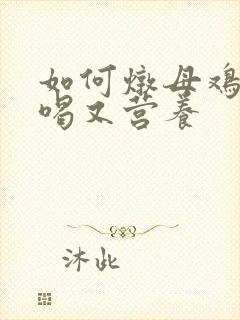 如何燉母鸡
喝又营养
沐此